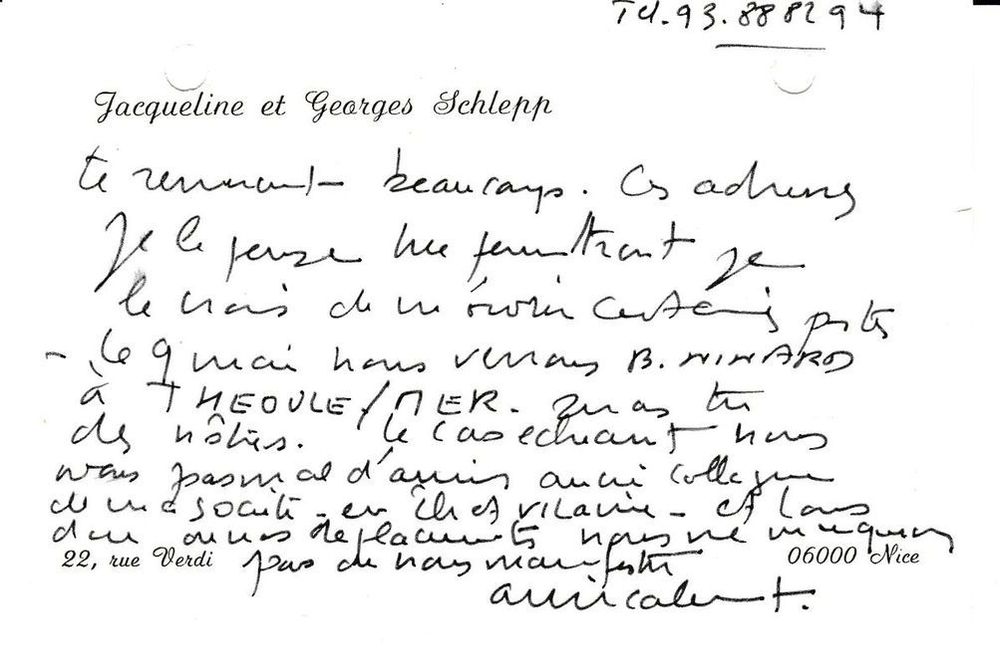 Tel. 93. 888294
Jacqueline et Georges Schlepp
te remerciant beaucoup. Ces adresses
Je le pense me permettront je
le crois de revoir certains potes
- Le 9 mai nous verrons B. NINARD
à THEOULE/MER. Seras tu
des nôtres. Le cas echeant nous
avons pas mal d'amis ancien collegue
de ma société - en Ille et vilaine - et lors
d'un de nos deplacements nous ne manquerons
22, rue Verdi pas de nous manifester 06000 Nice
amicalement.